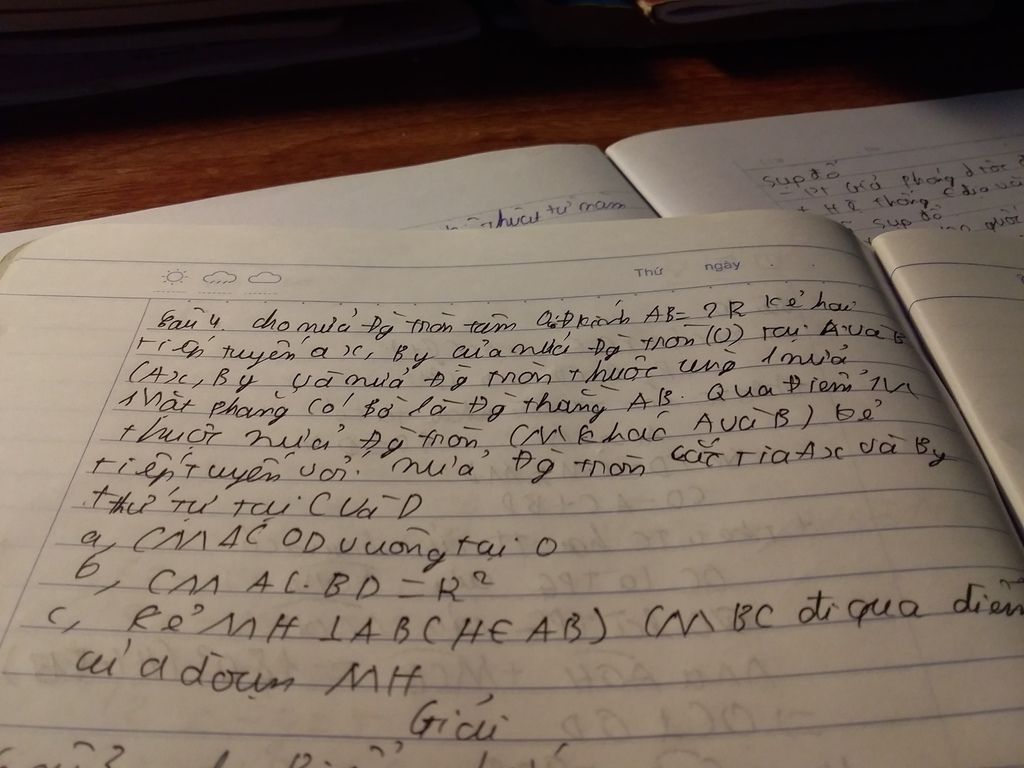 sụp đổ
phóng
+ Hệ thống
sụp đổ
quốc
Thứ ngày
Câu 4. cho nửa đg tròn tâm O, đ kính AB = 2R kẻ hai
tiếp tuyến Ax, By của nửa đg tròn (O) tại A và B
(Ax, By và nửa đg tròn thuộc cùng 1 nửa
mặt phẳng có bờ là đg thẳng AB. Qua điểm M
thuộc nửa đg tròn (M khác A và B) kẻ
tiếp tuyến với nửa đg tròn cắt tia Ax và By
thứ tự tại C và D
a, CM △COD vuông tại O
b, CM AC.BD = R²
c, kẻ MH ⊥ AB (H ∈ AB) CM BC đi qua điểm
của đoạn MH
Giải